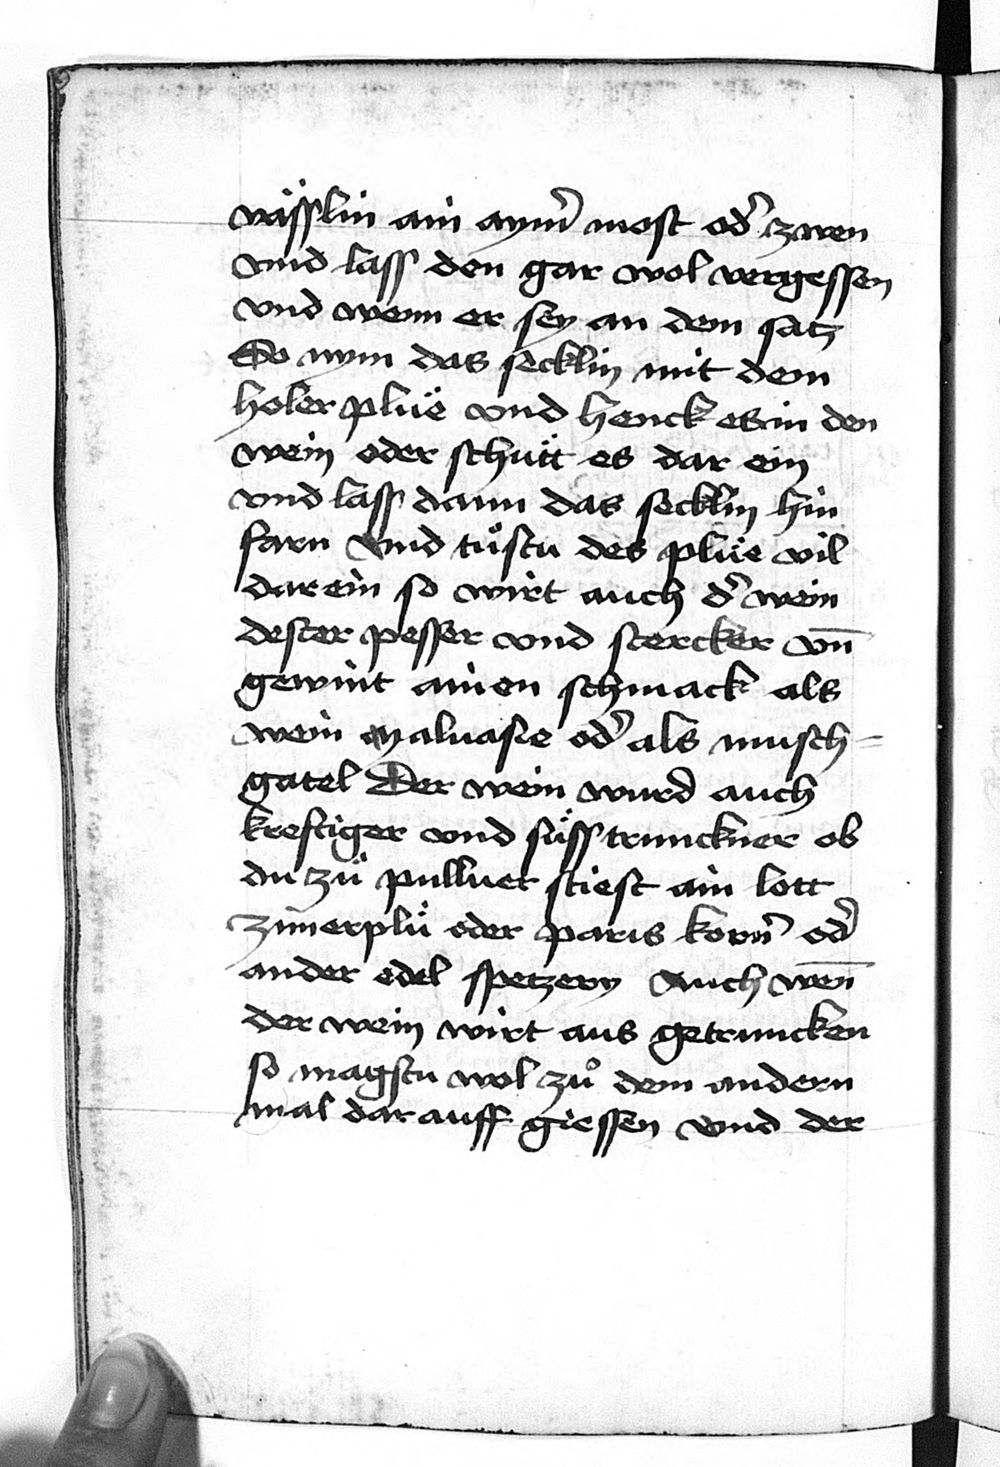 vässlin ain aym̄ most od̕ zwen
vnd lass den gar wol vergessen
vnd wenn er sey an dem satz
So nym das secklin mit dem
holer plüe vnd henck es in den
wein oder schütt es dar ein
vnd lass dann das secklin hin
farn vnd tůstu des plüe vil
dar ein so wirt auch d̕ wein
dester pesser vnd stercker vn̄
gewint ainen schmack als
wein Maluasie od̕ als musch=
gatel Der wein wurd auch
kreftiger vnd süss trunckner ob
du zů pulluer stiest ain lott
zimerplü oder paris korn̕ od̕
ander edel spetzery Auch wen̄
der wein wirt aus getruncken
so magstu wol zů dem andern
mal dar auff giessen vnd der